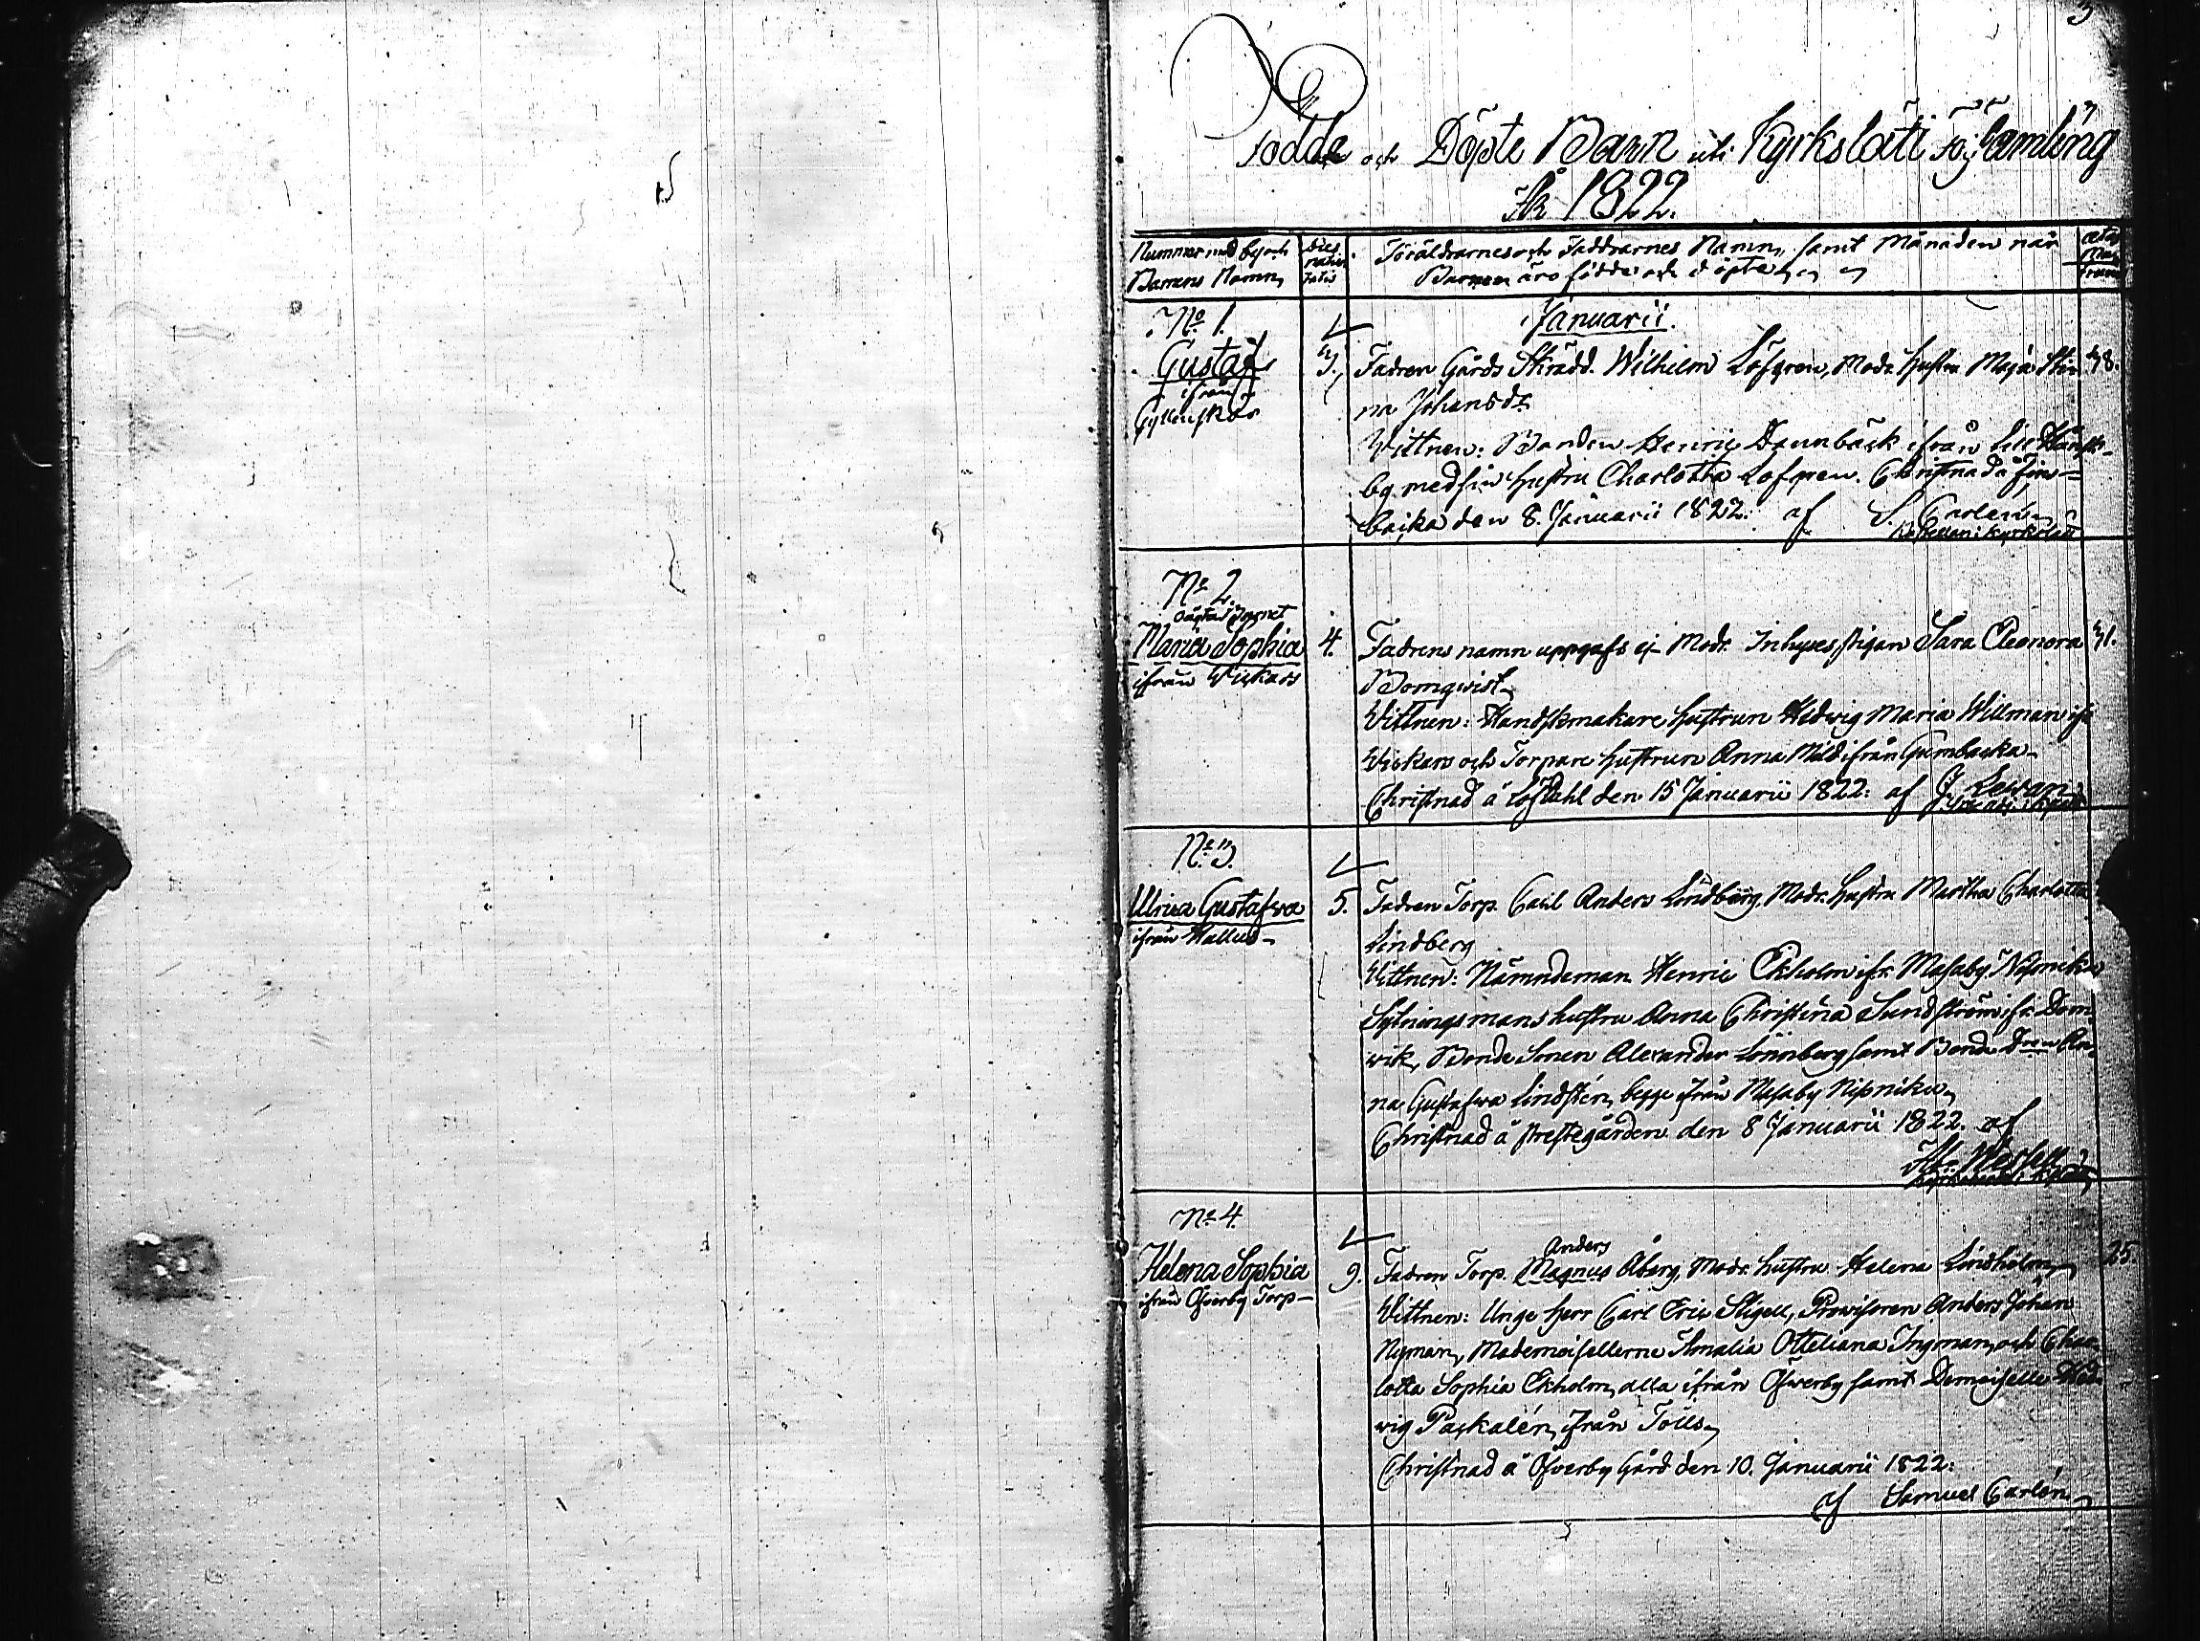 3
Födde och Döpte Barn uti Kyrkslätt Församling
År 1822.
Nummer med by och
Barnens Namn
Dies
nativi
tatis
Föräldrarnes och Faddrarnes Namn, samt Månaden när
Barnen äro födde och döpte
ætas
Ma
trum
No 1.
Januarii.
Gustaf
ifrån
Gyllenskär
3.
Fadren Gårds Skrädd. Wilhelm Löfgren, Modr. hustru Maja Sti
38.
na Johansdr
Vittnen: Bonden Henric Dannbäck ifrån
by med sin hustru Charlotta Löfgren. Christnad å Jin=
backa den 8. Januarii 1822. af S. Carlén
Capellan i Kyrkslätt
No 2.
oägta Barnet
Maria Sophia
ifrån Wickars
4.
Fadrens namn uppgafs ej Modr. Inhyses pigan Sara Eleonora
31.
Blomqwist
Vittnen: Handskmakare hustrun Hedwig Maria Willman ifr
Wickars och Torpare hustrun Anna Mild ifrån Gumbacka
Christnad å Löfdahl den 15 Januarii 1822: af
No 3.
Ulrica Gustafva
ifrån Wallus
5.
Fadren Torp. Carl Anders Lindberg, Modr. hustru Martha Charlotta
Lindberg
Vittnen: Nämndeman Henric Ekholm ifr. Masaby Nipnika
Sytningsmans hustru Anna Christina Sundström ifr. Dom
wik, Bonde Sonen Alexander Lönnberg samt Bonde Dren An
na Gustafva Lindstén, begge ifrån Masaby Nipnika
Christnad å Prestegården den 8 Januarii 1822. af
No 4.
Helena Sophia
ifrån Öfverby Torp
9.
Anders
Fadren Torp. Magnus Åberg, Modr. hustru Helena Lindholm
25.
Vittnen: Unge Herr Carl Eric Stigell, Provisoren Anders Johan
Nyman, Mademoisellerne Amalia Otteliana Ingman, och Char
lotta Sophia Ekholm, alla ifrån Öfwerby samt Demoiselle Hed
vig Paskalén, ifrån Tolls
Christnad å Öfverby Gård den 10. Januarii 1822:
af Samuel Carlén